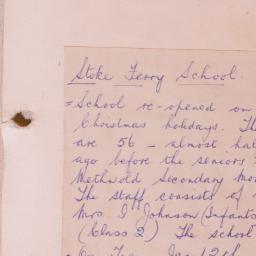 Stoke Ferry School.
School re-opened on
Christmas holidays. Th
are 56 – almost hal
ago before the seniors
Methwold Secondary Mod
The staff consists of
Mrs. I Johnson (Infants
(Class 2) The school
On Jan 12th